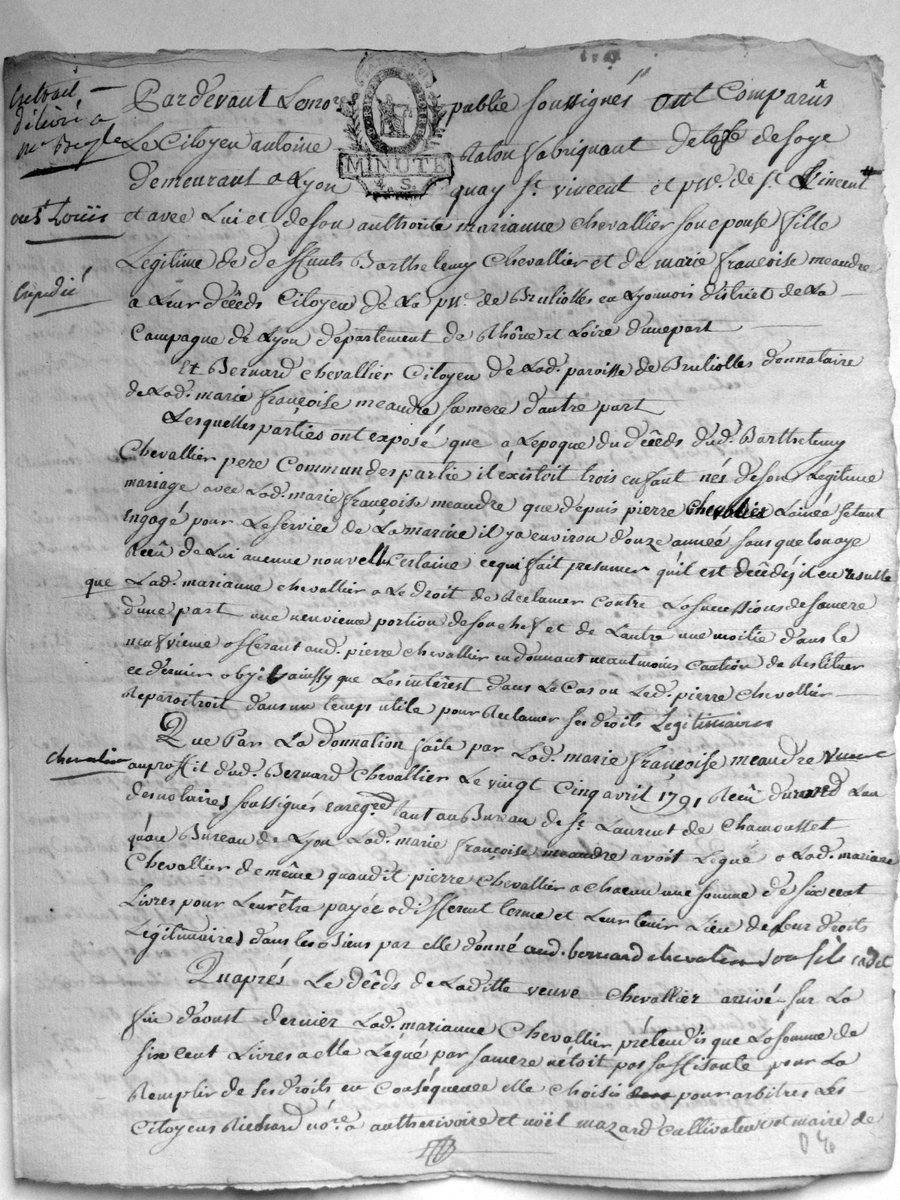 Extrait
délivré a
Pardevant Le no.re public soussignés ont Comparûs
Le Citoyen antoine Ralon fabriquant detofe de soye
MINUTE
4. S.
Demeurant a Lyon quay St. vincent et psse. de St. vincent
ou St Loüis
et avec Lui et de son authorité marianne Chevallier son epouse fille
Legitime de deffunts Barthelemy Chevallier et de marie françoise meandre
Expedié
a Leur décéds Citoyen de La psse. de Bruliolles en Lyonnois district de La
Campagne de Lyon département de Rhône et Loire d'une part
Et Bernard chevallier Citoyen de Lad. paroisse de Bruliolles donnataire
de Lad. marie françoise meandre sa mere d'autre part
Lesquelles parties ont exposé que a Lepoque du décéds dud. Barthelemy
Chevallier pere Commun des partie il éxistoit trois enfant nés de son Legitime
mariage avec Lad. marie françoise meandre que depuis pierre Chevallier Lainée setant
Engagé pour Le service de La marine il y a environ douze année sans que lon aye
Reçû de Lui aucune nouvelle certaine ce qui fait presumer quil est décédé, il en resulte
que Lad. marianne chevallier a Le droit de Reclamer contre La successions de sa mere
d'une part une neuvieme portion de son chef et de Lautre une moitié dans le
neufvieme afferant aud. pierre Chevallier en donnant neantmoins Caution de Restituer
ce dernier objet ainssy que Les intérest dans Le Cas ou Led. pierre Chevallier
Reparoitroit dans un temps utile pour Reclamer ses droits Legitimaires
Que Par La donnation faite par Lad. marie françoise meandre veuve
Chevallier
au proffit dud. Bernard Chevallier Le vingt Cinq avril 1791 Reçû du red L'un
des notaires soussignés enregred tant au Bureau de St. Laurent de Chamousset
qu'au Bureau de Lyon Lad. marie françoise meandre avoit Légué a Lad. mariane
Chevallier de même quaudit pierre Chevallier a chacun une somme de six cent
Livres pour Leur être payée a different terme et Leur tenir Lieu de Leur droits
Légitimaires dans les Biens par elle donné aud. bernard chevallier son fils cadet
Qu'aprés Le décéds de Laditte veuve Chevallier arrivé sur La
fin d'aoust dernier Lad. marianne Chevallier prétendis que La somme de
six cent Livres a elle Légué par sa mere nétoit pas suffisante pour La
Remplir de ses droits en Conséquence elle choisie pour arbitres Les
Citoyens Richard nore. a autherivoire et noël mazard Cultivateur et maire de